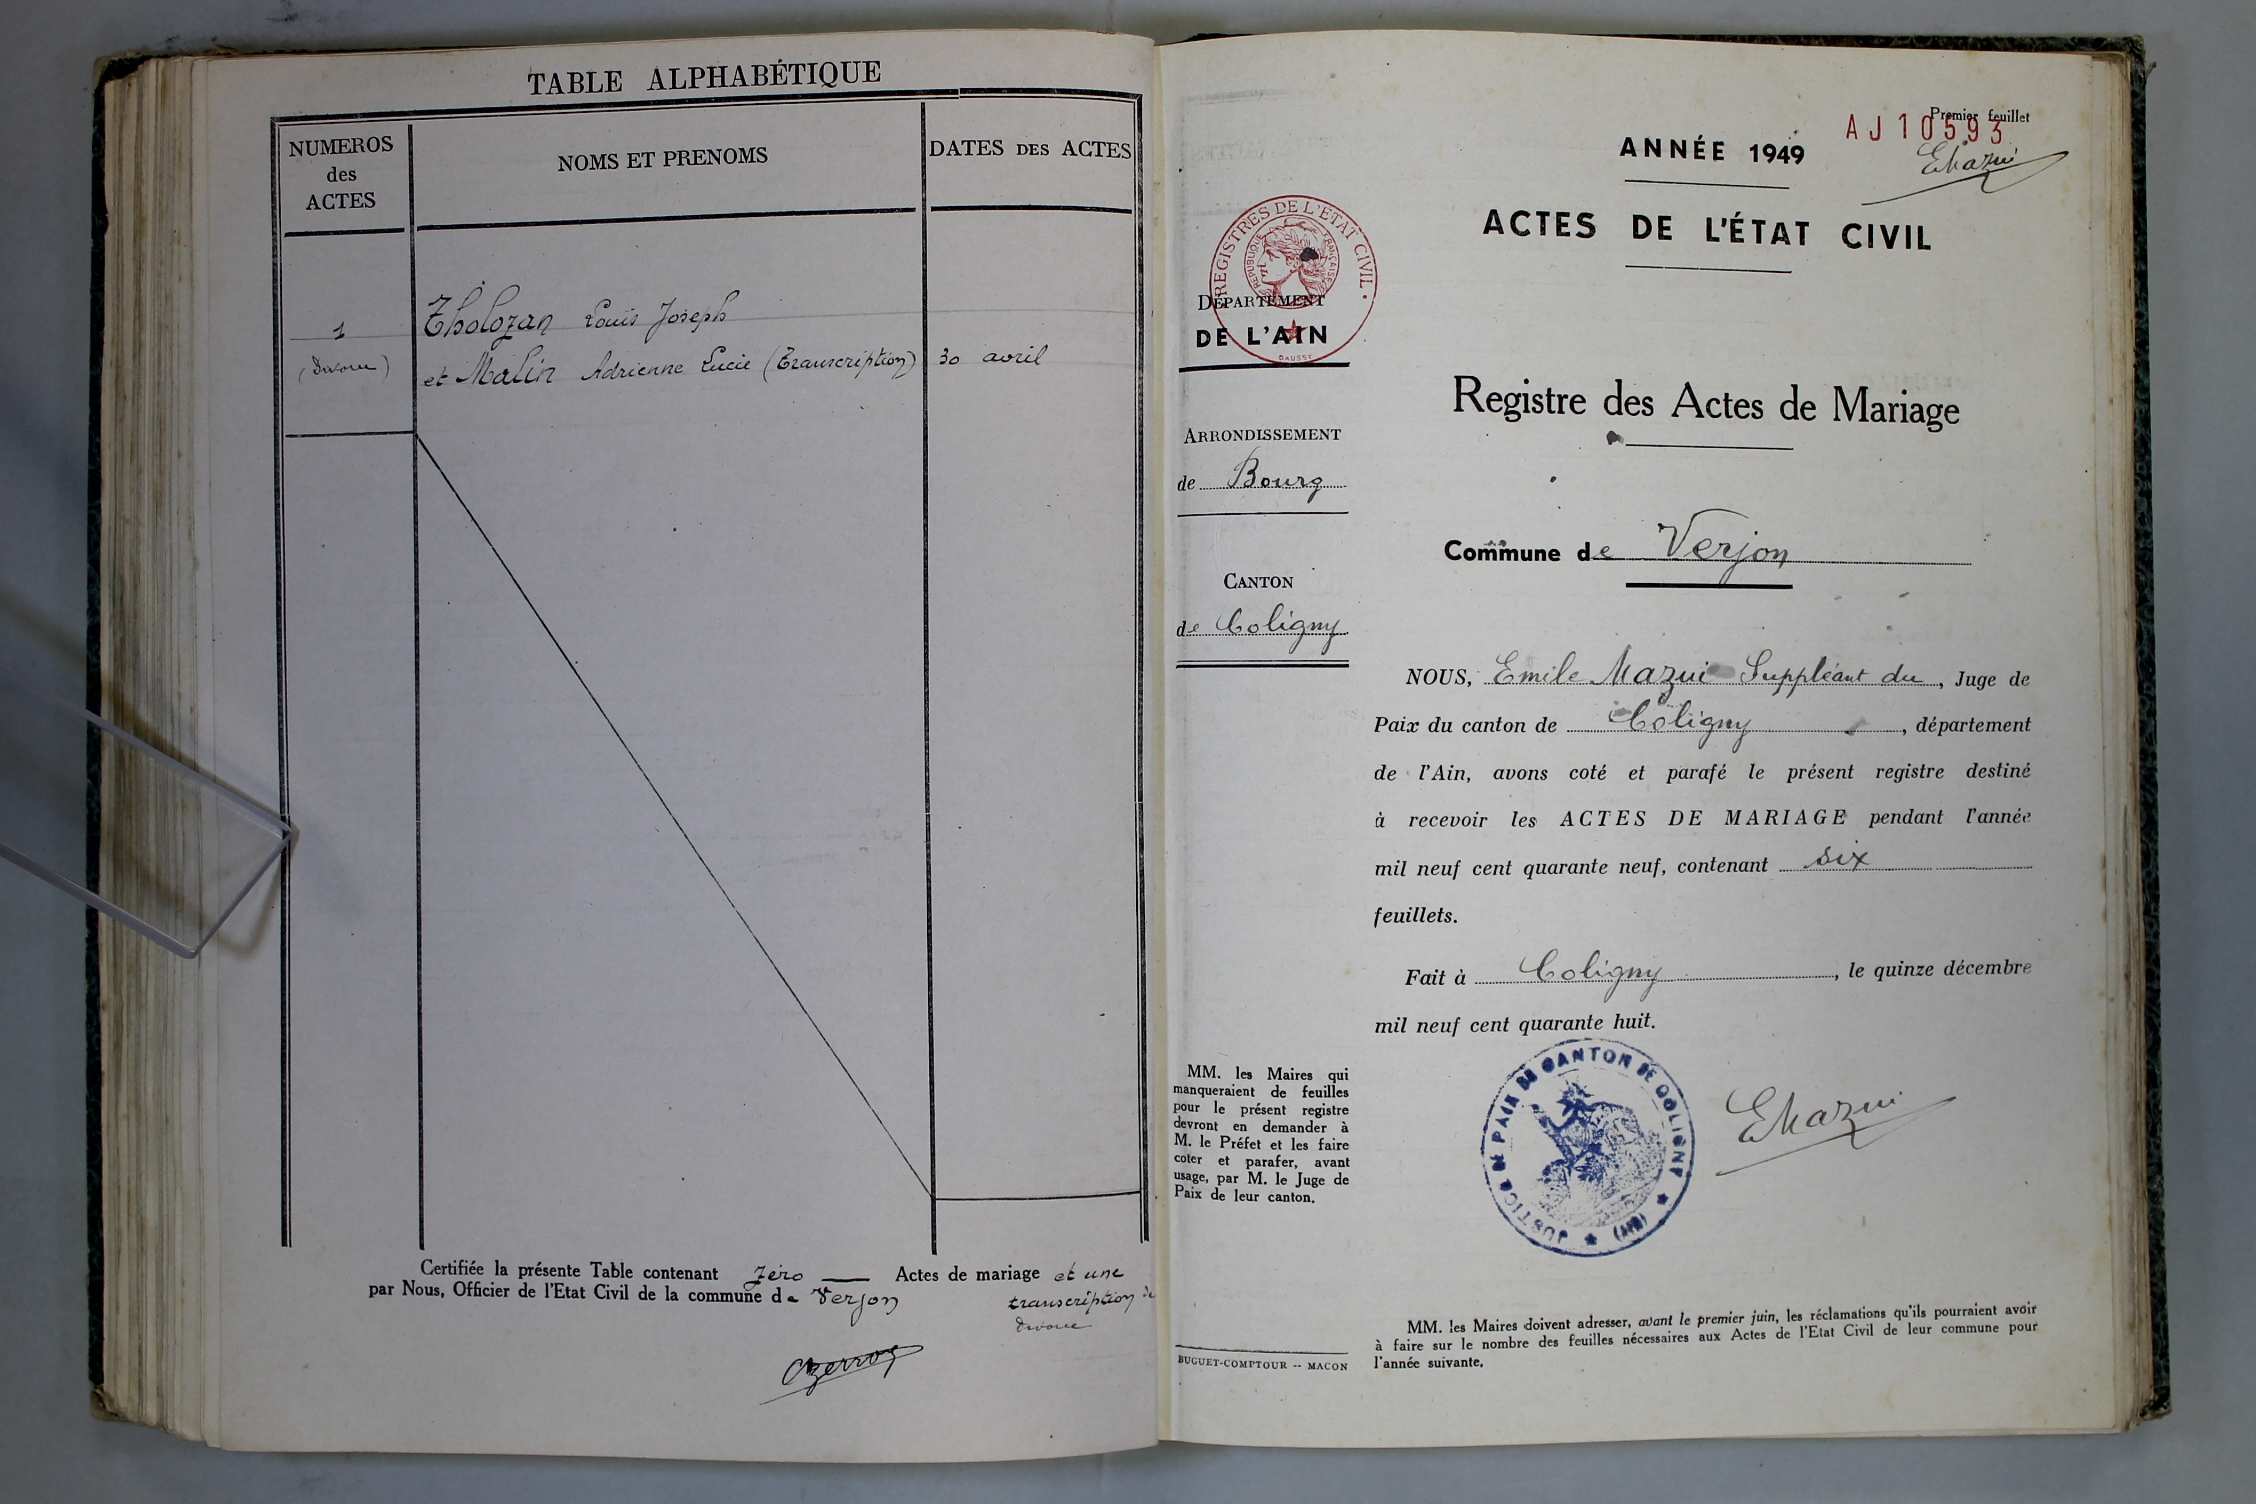 TABLE ALPHABÉTIQUE
NUMEROS
des
ACTES
NOMS ET PRENOMS
DATES DES ACTES
1
Tholozan Louis Joseph
(Divorce)
et Malin Adrienne Lucie (Transcription)
30 avril
Certifiée la présente Table contenant zéro Actes de mariage et une
par Nous, Officier de l'Etat Civil de la commune de Verjon
transcription de
divorce
Premier feuillet
AJ 10593
EMazui
ANNÉE 1949
ACTES DE L'ÉTAT CIVIL
REGISTRES DE L'ETAT CIVIL
REPUBLIQUE FRANÇAISE
DAUSSY
DÉPARTEMENT
DE L'AIN
ARRONDISSEMENT
de Bourg
CANTON
de Coligny
Registre des Actes de Mariage
Commune de Verjon
NOUS, Emile Mazui Suppléant du, Juge de
Paix du canton de Coligny, département
de l'Ain, avons coté et parafé le présent registre destiné
à recevoir les ACTES DE MARIAGE pendant l'année
mil neuf cent quarante neuf, contenant six
feuillets.
Fait à Coligny, le quinze décembre
mil neuf cent quarante huit.
JUSTICE DE PAIX DU CANTON DE COLIGNY
(AIN)
EMazui
MM. les Maires qui
manqueraient de feuilles
pour le présent registre
devront en demander à
M. le Préfet et les faire
coter et parafer, avant
usage, par M. le Juge de
Paix de leur canton.
BUGUET-COMPTOUR -- MACON
MM. les Maires doivent adresser, avant le premier juin, les réclamations qu'ils pourraient avoir
à faire sur le nombre des feuilles nécessaires aux Actes de l'Etat Civil de leur commune pour
l'année suivante.